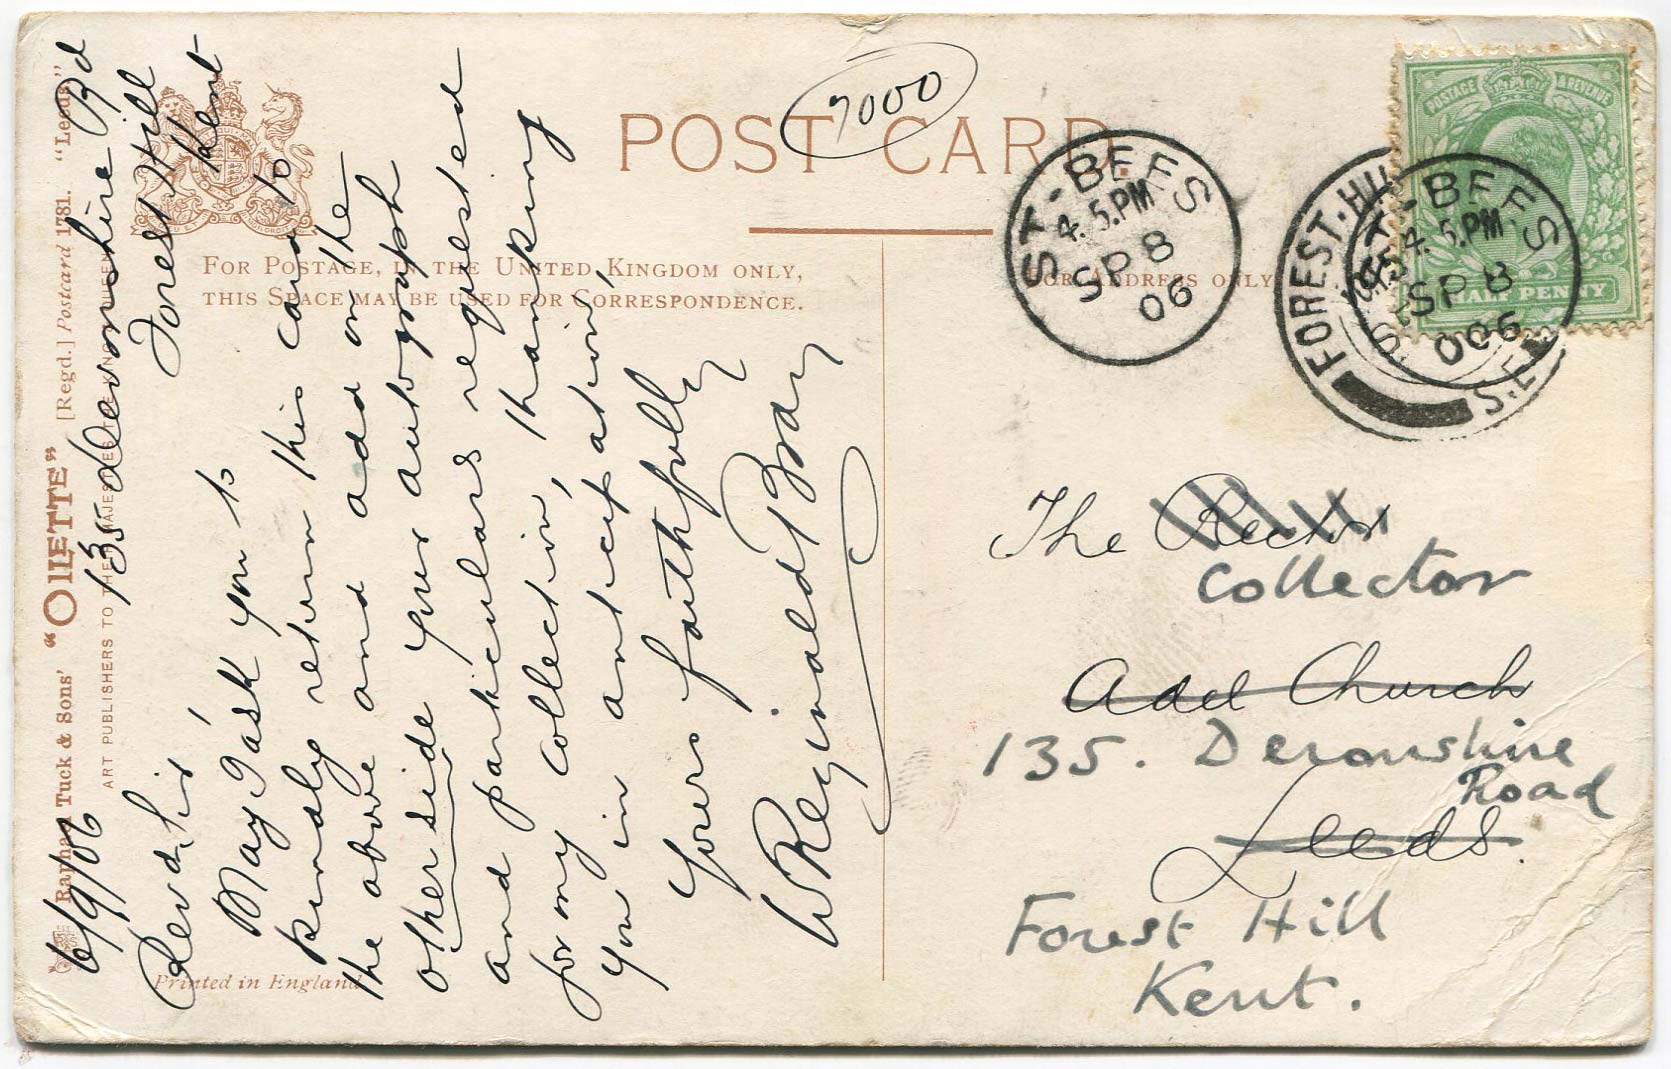 POST CARD.
7000
FOR POSTAGE, IN THE UNITED KINGDOM ONLY,
THIS SPACE MAY BE USED FOR CORRESPONDENCE.
FOR ADDRESS ONLY
Raphael Tuck & Sons' "OILETTE" [Regd.] Postcard 1781. "Leeds"
ART PUBLISHERS TO THEIR MAJESTIES THE KING & QUEEN
Printed in England
6/9/06 135 Devonshire Rd
Forest Hill
Kent
Revd Sir,
May I ask you to
kindly return this card to
the above and add on the
other side your autograph
and particulars requested
for my collection, thanking
you in anticipation,
Yours faithfully
W Reginald Bray
ST-BEES
4.5.PM
SP 8
06
FOREST.HILL
S.E.
ST-BEES
4.5.PM
SP 8
06
POSTAGE & REVENUE
HALF PENNY
The Rector
Collector
Adel Church
135. Devonshire
Road
Leeds.
Forest Hill
Kent.